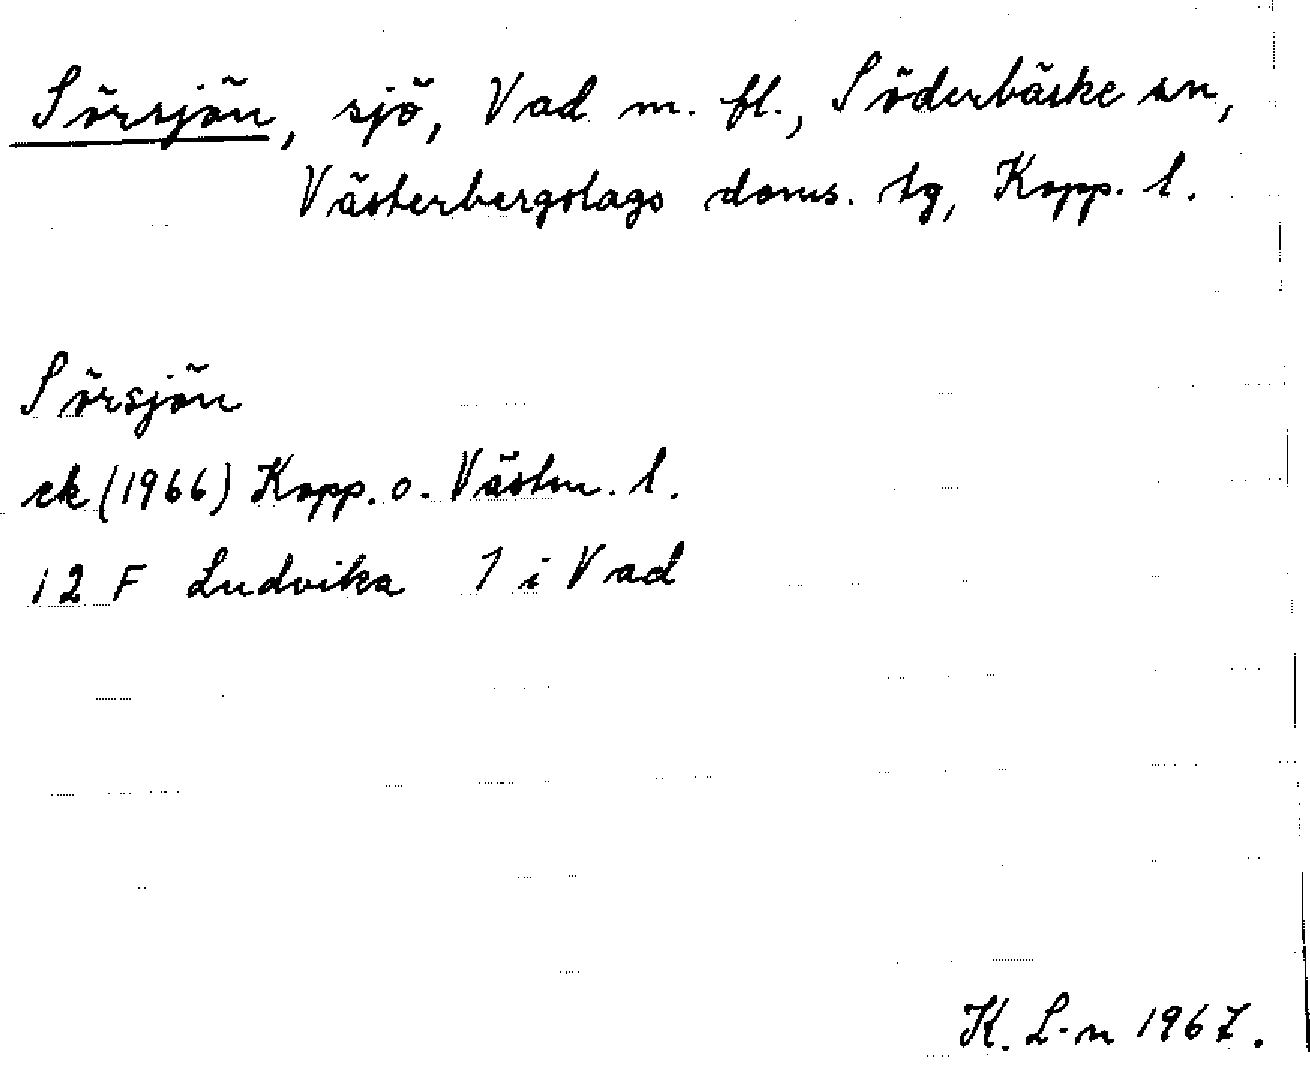 Sörsjön, sjö, Vad m. fl., Söderbärke sn,
Västerbergslags doms. tg, Kopp. l.
Sörsjön
ek (1966) Kopp. o. Västm. l.
12 F Ludvika 1 i Vad
K. L-n 1967.